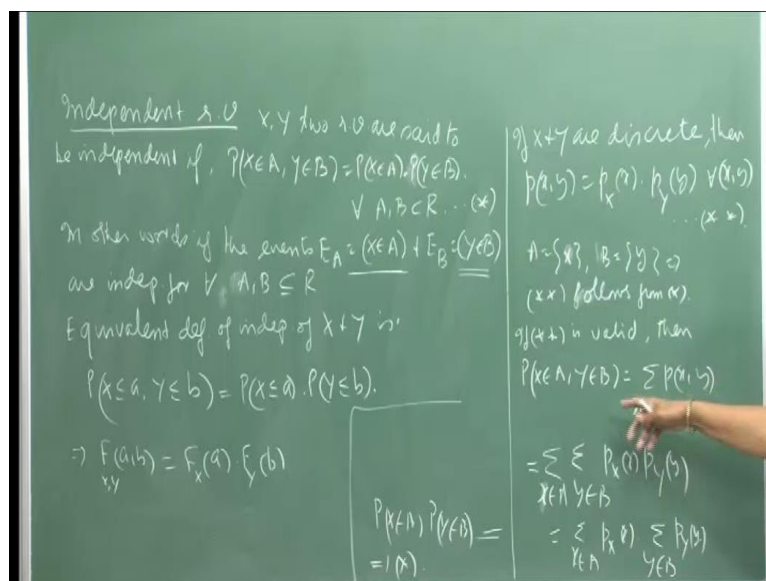 Independent r.v X, Y two r.v are said to
be independent if, P(X∈A, Y∈B) = P(X∈A).P(Y∈B).
∀ A,B ⊂ R ... (*)
In other words if the events E_A = (X∈A) + E_B = (Y∈B)
are indep for ∀ A,B ⊆ R
Equivalent def. of indep of X + Y is.
P(X≤a, Y≤b) = P(X≤a).P(Y≤b).
⇒ F_{X,Y}(a,b) = F_X(a).F_Y(b)
P(X∈A) P(Y∈B) =
=) (*).
If X + Y are discrete, then
p(x,y) = p_X(x). p_Y(y) ∀(x,y)
... (* *).
A={x}, B={y} ⇒
(**) follows from (*).
If (**) is valid, then
P(X∈A, Y∈B) = Σ p(x,y)
= Σ_{X∈A} Σ_{Y∈B} p_X(x) p_Y(y)
= Σ_{X∈A} p_X(x) Σ_{Y∈B} p_Y(y)